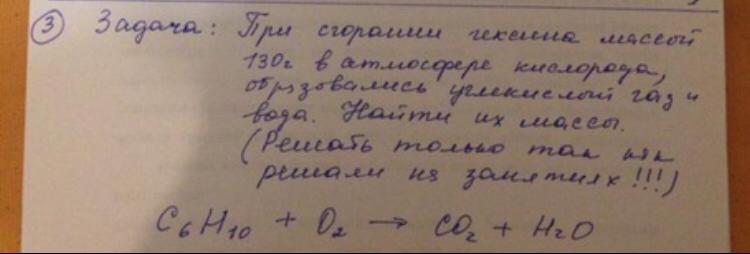 ③ Задача: При сгорании гексина массой
130г в атмосфере кислорода,
обрзовались углекислый газ и
вода. Найти их массы.
(Решать только так как
решали на занятиях!!!)
C₆H₁₀ + O₂ → CO₂ + H₂O